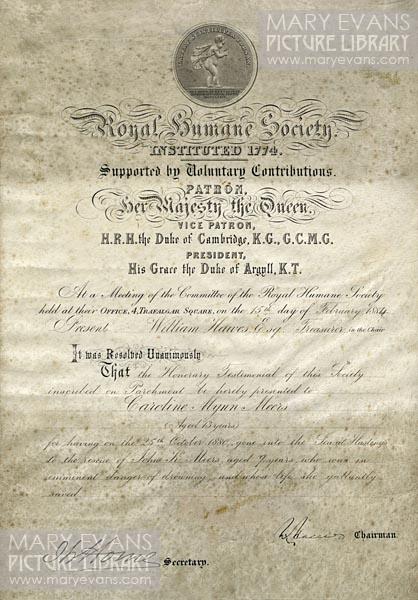 MARY EVANS
PICTURE LIBRARY
www.maryevans.com
Royal Humane Society.
INSTITUTED 1774.
Supported by Voluntary Contributions.
PATRON,
Her Majesty the Queen.
VICE PATRON,
H.R.H. the Duke of Cambridge, K.G., G.C.M.G.
PRESIDENT,
His Grace the Duke of Argyll, K.T.
At a Meeting of the Committee of the Royal Humane Society
held at their OFFICE, 4, TRAFALGAR SQUARE, on the 15th day of February 1884
Present William Hawes Esq. Treasurer in the Chair
It was Resolved Unanimously
That the Honorary Testimonial of this Society
inscribed on Parchment be hereby presented to
Caroline Mynn Meers
(Aged 13 years)
for having on the 25th October 1880, gone into the Sea at Hastings
to the rescue of John K. Meers, aged 7 years, who was in
imminent danger of drowning, and whose life she gallantly
saved.
Chairman.
Secretary.
MARY EVANS
PICTURE LIBRARY
www.maryevans.com